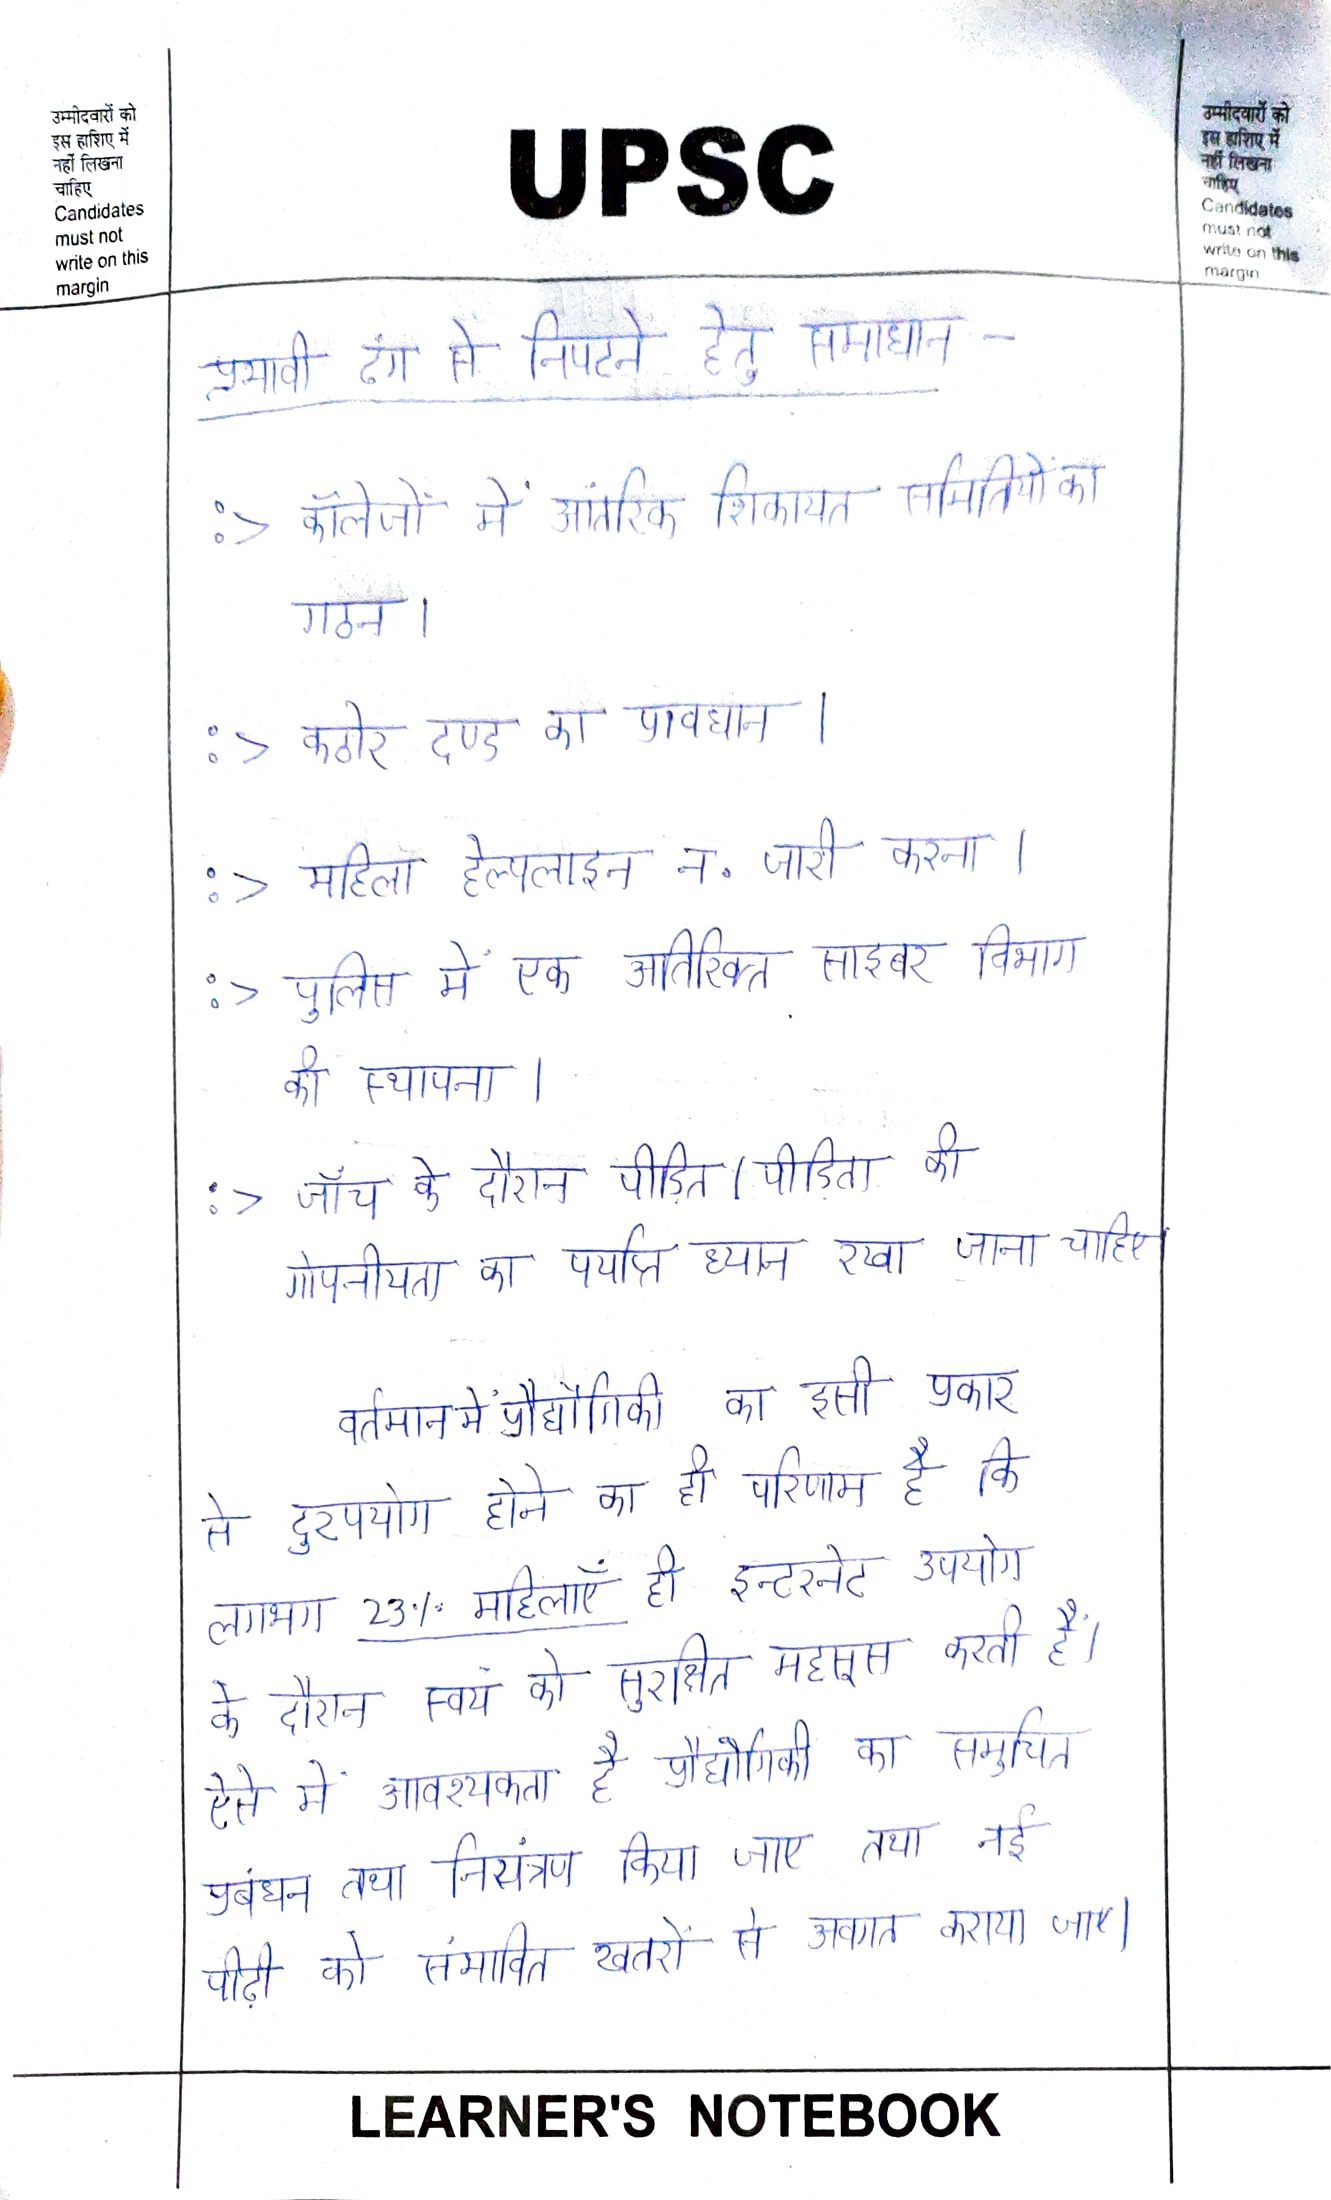 उम्मीदवारों को
इस हाशिए में
नहीं लिखना
चाहिए
Candidates
must not
write on this
margin
UPSC
उम्मीदवारों को
इस हाशिए में
नहीं लिखना
चाहिए
Candidates
must not
write on this
margin
प्रभावी ढंग से निपटने हेतु समाधान -
:> कॉलेजों में आंतरिक शिकायत समितियों का
गठन ।
:> कठोर दण्ड का प्रावधान ।
:> महिला हेल्पलाइन न. जारी करना ।
:> पुलिस में एक अतिरिक्त साइबर विभाग
की स्थापना ।
:> जाँच के दौरान पीड़ित / पीड़िता की
गोपनीयता का पर्याप्त ध्यान रखा जाना चाहिए
वर्तमान में प्रौद्यौगिकी का इसी प्रकार
से दुरपयोग होने का ही परिणाम है कि
लगभग 23% महिलाएँ ही इन्टरनेट उपयोग
के दौरान स्वयं को सुरक्षित महसूस करती हैं।
ऐसे में आवश्यकता है प्रौद्यौगिकी का समुचित
प्रबंधन तथा नियंत्रण किया जाए तथा नई
पीढ़ी को संभावित खतरों से अवगत कराया जाए।
LEARNER'S NOTEBOOK